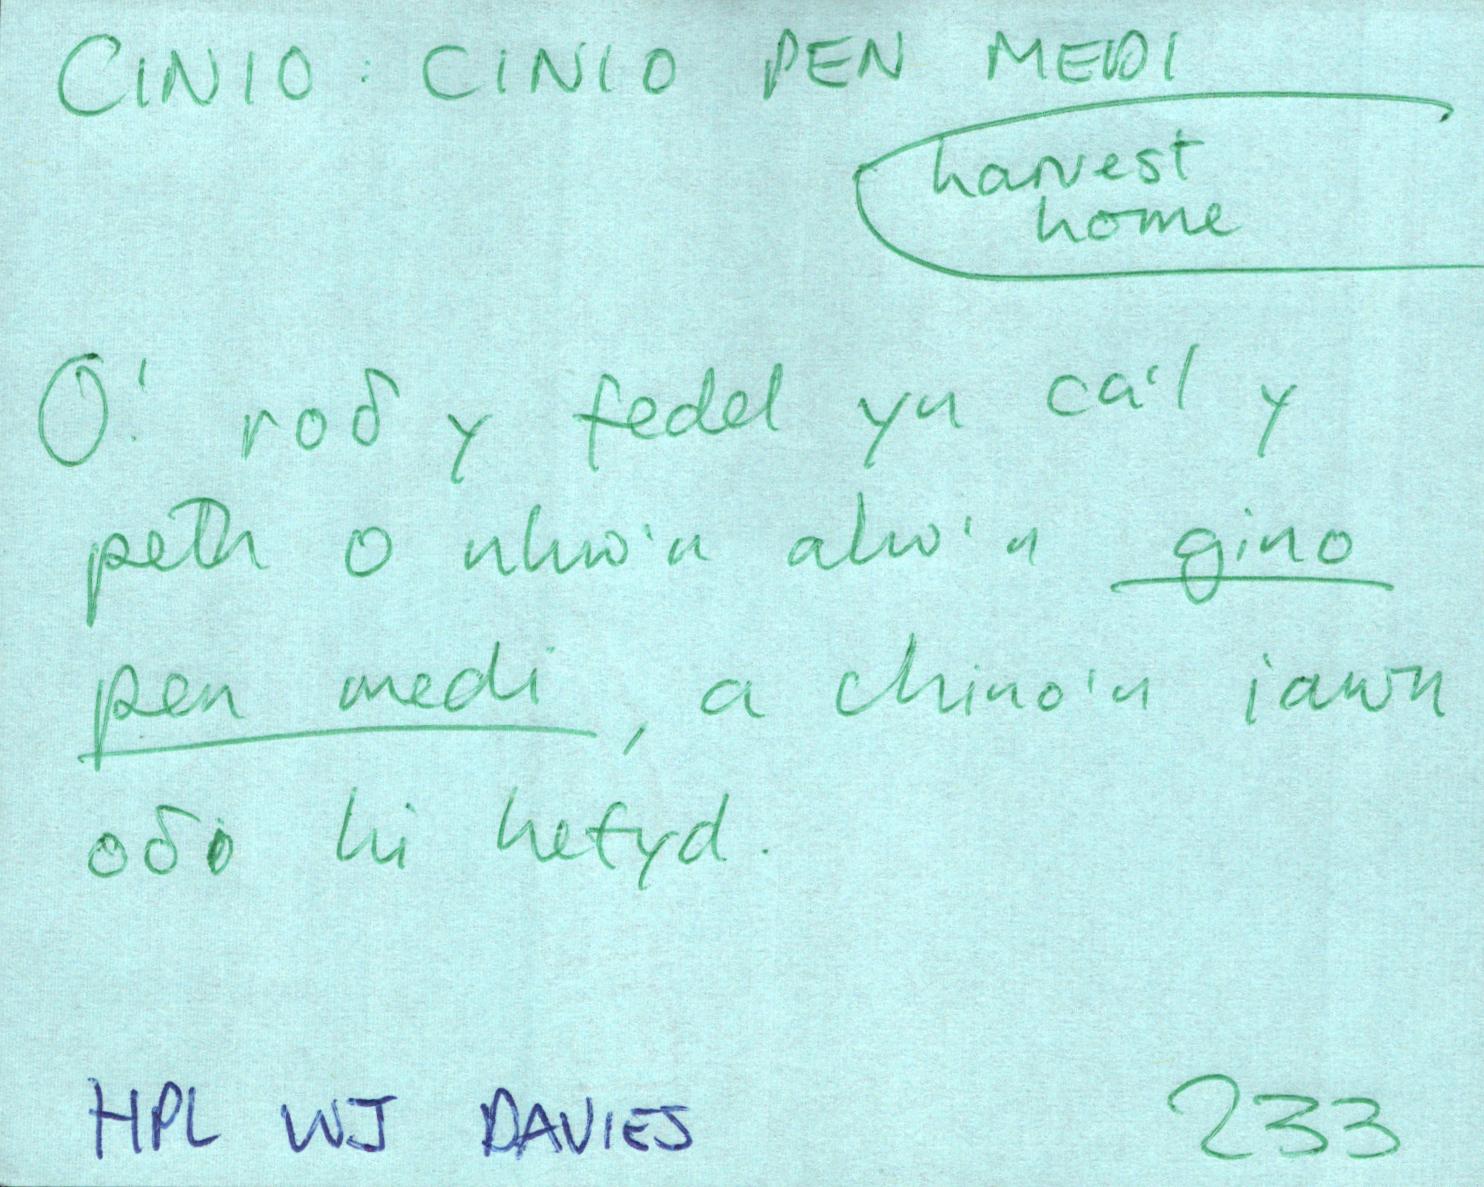 CINIO : CINIO PEN MEDI
harvest
home
O! roδ y fedel yn ca'l y
peth o nhw'n alw'n gino
pen medi, a chino'n iawn
oδo hi hefyd.
HPL WJ DAVIES 233